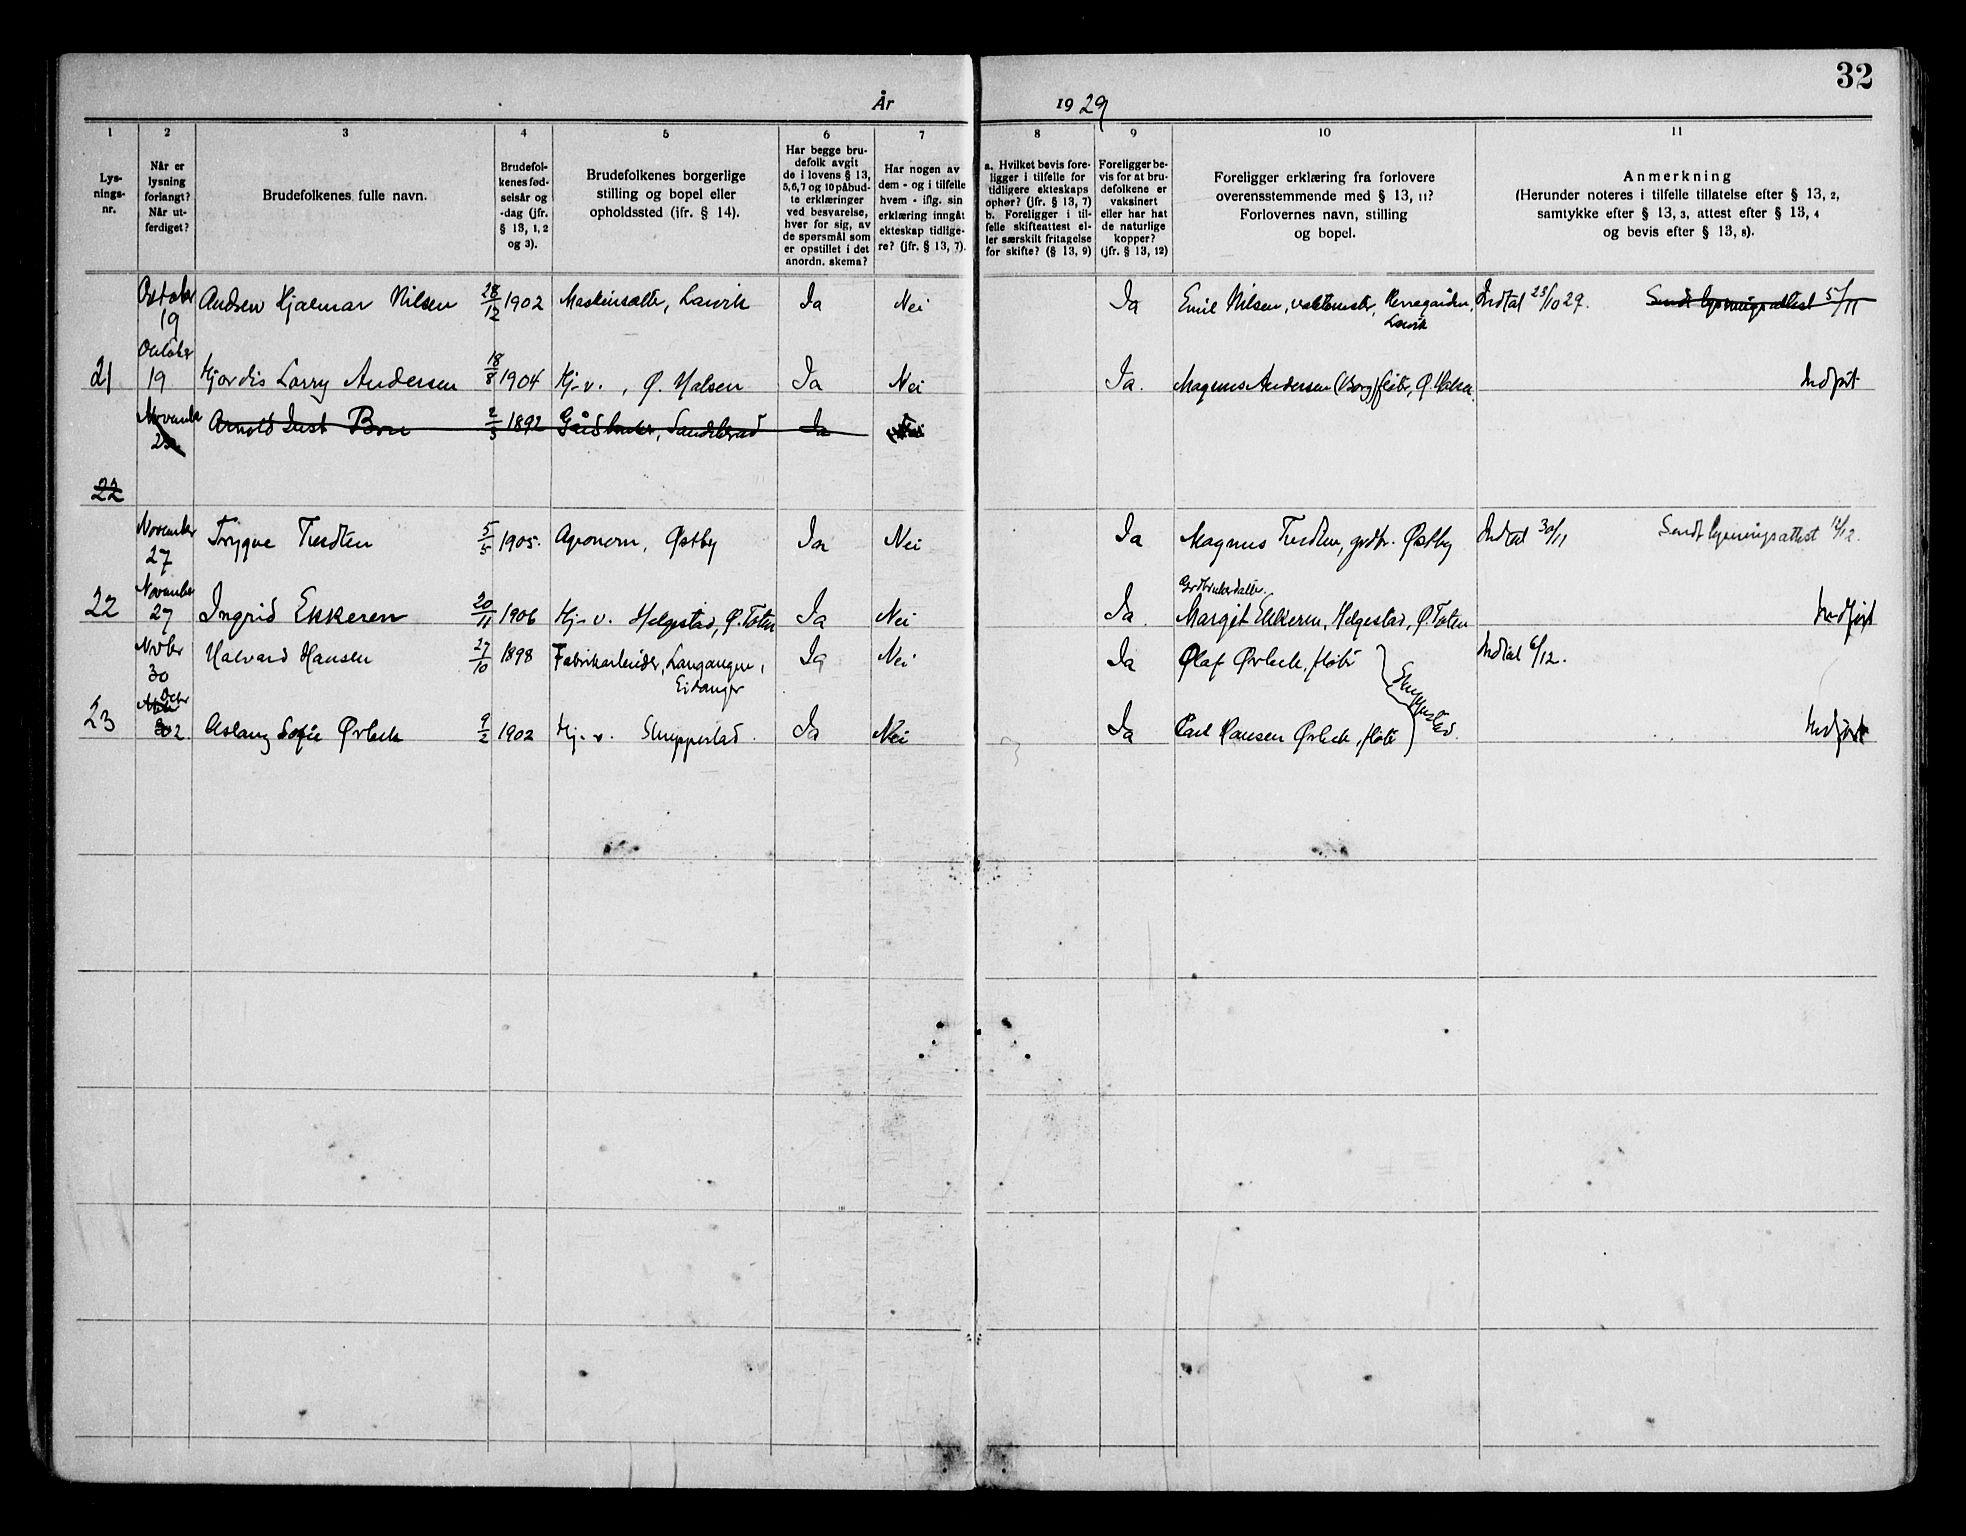 32
År 1929
1 2 3 4 5 6 7 8 9 10 11
Lys-
nings-
nr.
Når er
lysning
forlangt?
Når ut-
ferdiget?
Brudefolkenes fulle navn.
Brudefol-
kenes fød-
selsår og
-dag (jfr.
§ 13, 1, 2
og 3).
Brudefolkenes borgerlige
stilling og bopel eller
opholdssted (ifr. § 14).
Har begge bru-
defolk avgit
de i lovens § 13,
5, 6, 7 og 10 påbud-
te erklæringer
ved besvarelse,
hver for sig, av
de spørsmål som
er opstillet i det
anordn. skema?
Har nogen av
dem - og i tilfelle
hvem - iflg. sin
erklæring inngått
ekteskap tidlige-
re? (jfr. § 13, 7).
a. Hvilket bevis fore-
ligger i tilfelle for
tidligere ekteskaps
ophør? (jfr. § 13, 7)
b. Foreligger i til-
felle skifteattest el-
ler særskilt fritagelse
for skifte? (§ 13, 9)
Foreligger be-
vis for at bru-
defolkene er
vaksinert
eller har hat
de naturlige
kopper?
(jfr. § 13, 12)
Foreligger erklæring fra forlovere
overensstemmende med § 13, 11?
Forlovernes navn, stilling
og bopel.
Anmerkning
(Herunder noteres i tilfelle tillatelse efter § 13, 2,
samtykke efter § 13, 3, attest efter § 13, 4
og bevis efter § 13, 8).
October 19 Andsen Hjalmar Nilsen 28/12 1902 Maskinsætter, Larvik Ja Nei Ja Emil Nilsen, Larvik Indtat 23/10 29. Sendt lysningsattest 5/11
21 October 19 Hjordis Larry Andersen 18/8 1904 Hj-v., Ø. Halsen Ja Nei Ja. Magnus Andersen (Borg) fisker, Ø. Halsen. Indført
22 November Arnold Just Bore 2/3 1892 Gårdbruker, Ja
November 27 Trygve Tredten 5/5 1905. Agronom, Østby Ja Nei Ja Magnus Tredten, grdbr. Østby Indtat 30/11 Sendt lysningsattest 14/12.
22 November 27 Ingrid Ekkeren 20/11 1906 Hj-v. Helgestad, Ø. Toten Ja Nei Ja. Gardbrukerdatter. Margit Ekkeren, Helgestad, Ø. Toten Indført
Novbr 30 Halvard Hansen 27/10 1898 Fabrikarbeider, Langangen, Eidanger Ja Nei Ja Olaf Ørbek, Indtat 6/12.
23 Decbr 2 Aslaug Sofie Ørbek 9/2 1902 Hj-v. Skuppestad. Ja Nei Ja Carl Hansen Ørbek, Skuppestad. Indført